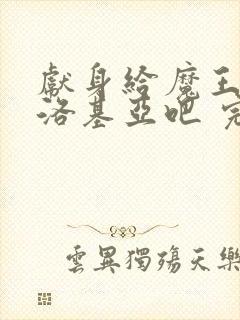 獻身給魔王
洛基亞吧 完
雲異獨殤天樂